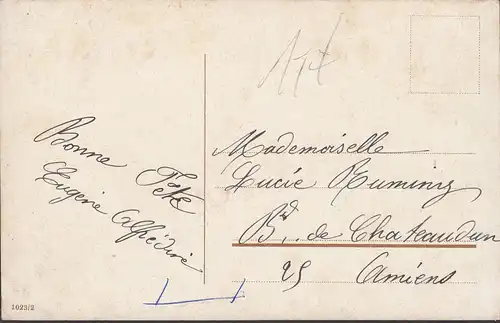 Bonne Fête
Eugène
Mademoiselle
Lucie
Bd. de Chateaudun
25 Amiens
1023/2